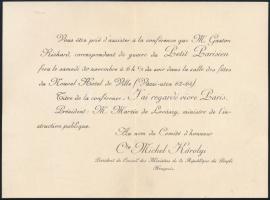 Vous être prié d'assister à la conférence que M. Gaston
Richard, correspondant de guerre du Petit Parisien
fera le samedi 30 novembre à 6 h ½ du soir dans la salle des fêtes
du Nouvel Hôtel de Ville (Váci-utca 62-64)
Titre de la conférence: J'ai regardé vivre Paris.
Président: M. Martin de Lovászy, ministre de l'in-
struction publique.
Au nom du Comité d'honneur
Cte Michel Károlyi
Président du Conseil des Ministres de la République du Peuple
Hongrois.